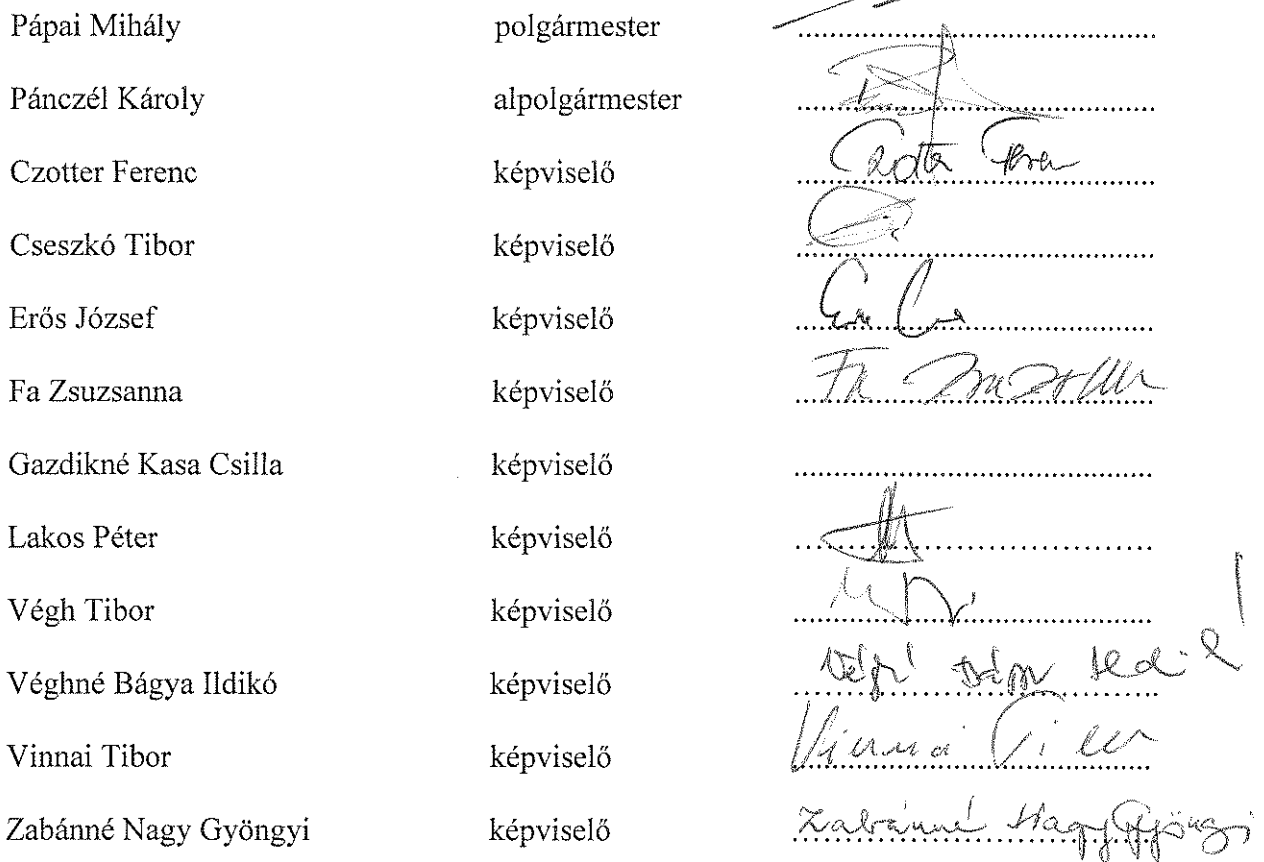 Pápai Mihály polgármester
Pánczél Károly alpolgármester
Czotter Ferenc képviselő Czotter Ferenc
Cseszkó Tibor képviselő
Erős József képviselő
Fa Zsuzsanna képviselő Fa Zsuzsanna
Gazdikné Kasa Csilla képviselő
Lakos Péter képviselő
Végh Tibor képviselő
Véghné Bágya Ildikó képviselő
Vinnai Tibor képviselő Vinnai Tibor
Zabánné Nagy Gyöngyi képviselő Zabánné Nagy Gyöngyi